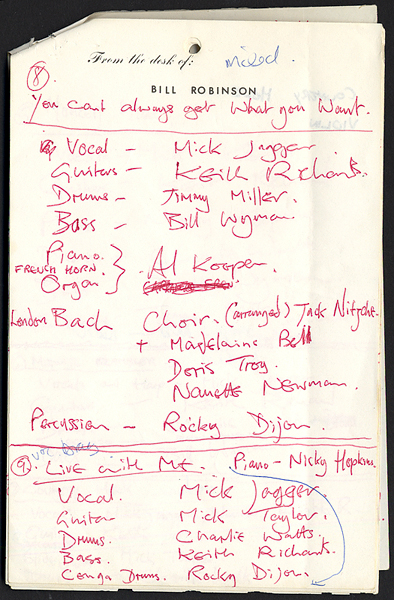 From the desk of: mixed.
BILL ROBINSON
⑧
You cant always get what you want.
Vocal – Mick Jagger
Guitars – Keith Richards.
Drums – Jimmy Miller.
Bass – Bill Wyman.
Piano.
FRENCH HORN. } Al Kooper.
Organ
London Bach Choir. (arranged) Jack Nitzche.
+ Madelaine Bell
Doris Troy.
Nanette Newman.
Percussion – Rocky Dijon.
⑨. Live with Me. Piano – Nicky Hopkins.
Vocal. Mick Jagger.
Guitar Mick Taylor.
Drums. Charlie Watts.
Bass. Keith Richards.
Conga Drums. Rocky Dijon.